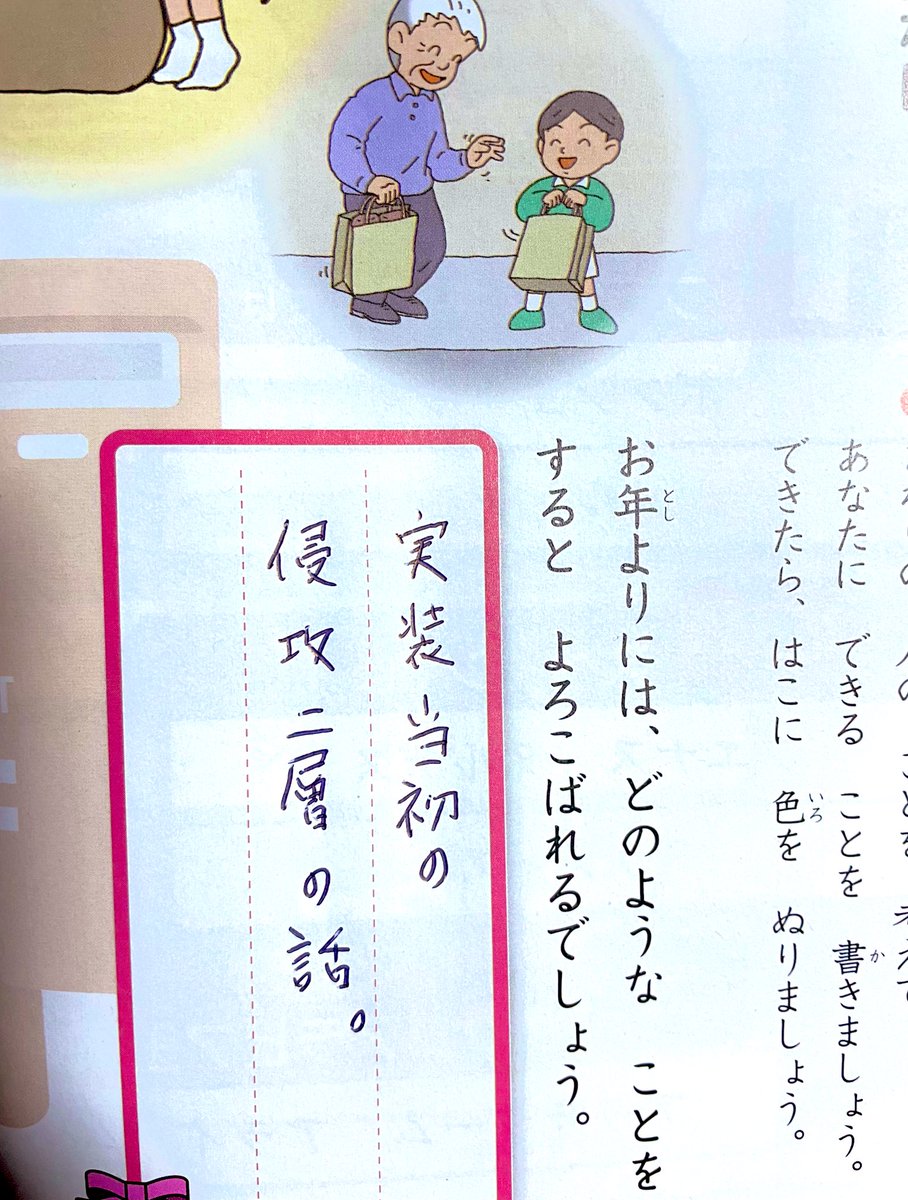 あなたに できる ことを 書きましょう。
できたら、はこに 色を ぬりましょう。
お年よりには、どのような ことを
すると よろこばれるでしょう。
実装当初の
侵攻二層の話。